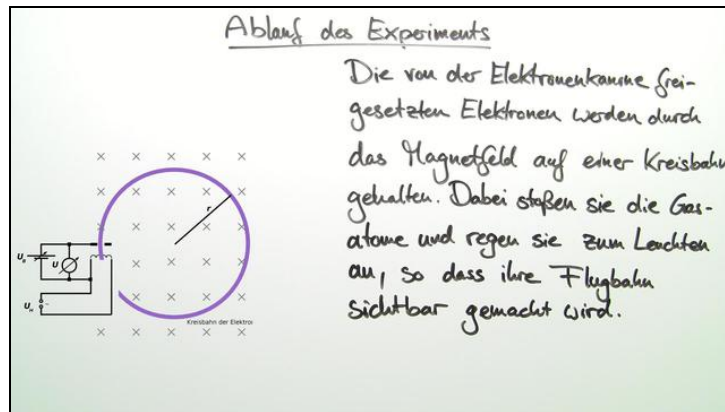 Ablauf des Experiments
Die von der Elektronenkanone frei-
gesetzten Elektronen werden durch
das Magnetfeld auf einer Kreisbahn
gehalten. Dabei stoßen sie die Gas-
atome und regen sie zum Leuchten
an, so dass ihre Flugbahn
sichtbar gemacht wird.
r
U
Kreisbahn der Elektro